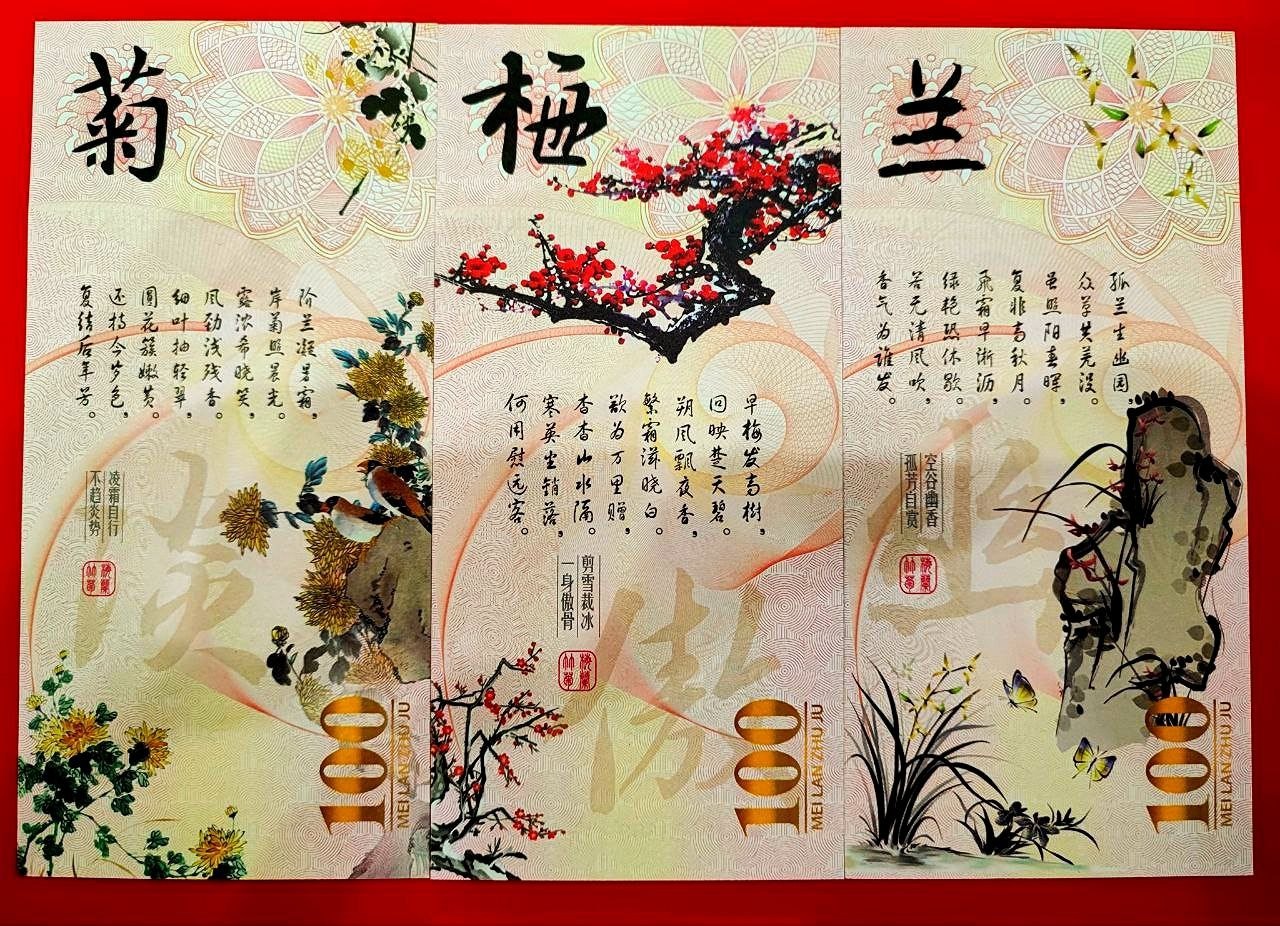 菊
阶兰凝暑霜，
岸菊照晨光。
露浓希晓笑，
风劲浅残香。
细叶抽轻翠，
圆花簇嫩黄。
还持今岁色，
复结后年芳。
凌霜自行
不趋炎势
梅蘭
竹菊
淡
100
MEI LAN ZHU JU
梅
早梅发高樹，
回映楚天碧。
朔风飘夜香，
繁霜滋晓白。
欲为万里赠，
杳杳山水隔。
寒英坐销落，
何用慰远客。
剪雪裁冰
一身傲骨
梅蘭
竹菊
傲
100
MEI LAN ZHU JU
兰
孤兰生幽园，
众草共芜没。
虽照阳春晖，
复非高秋月。
飞霜早淅沥，
绿艳恐休歇。
若无清风吹，
香气为谁发。
空谷幽香
孤芳自赏
梅蘭
竹菊
100
MEI LAN ZHU JU